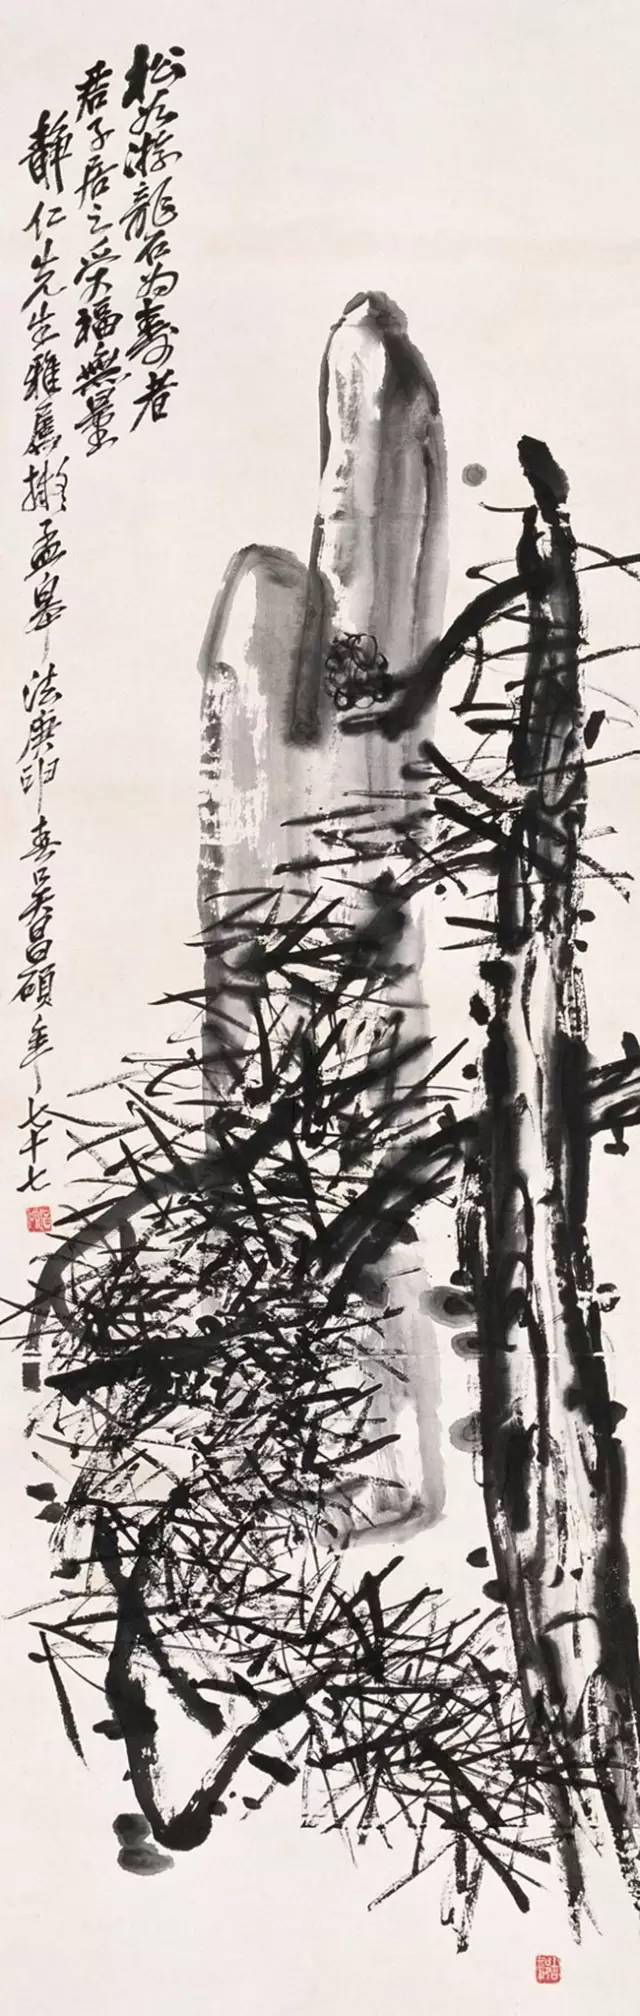 松如游龍石為壽者
君子居之受福無量
靜仁先生雅屬擬孟皋法庚申春吳昌碩年七十七